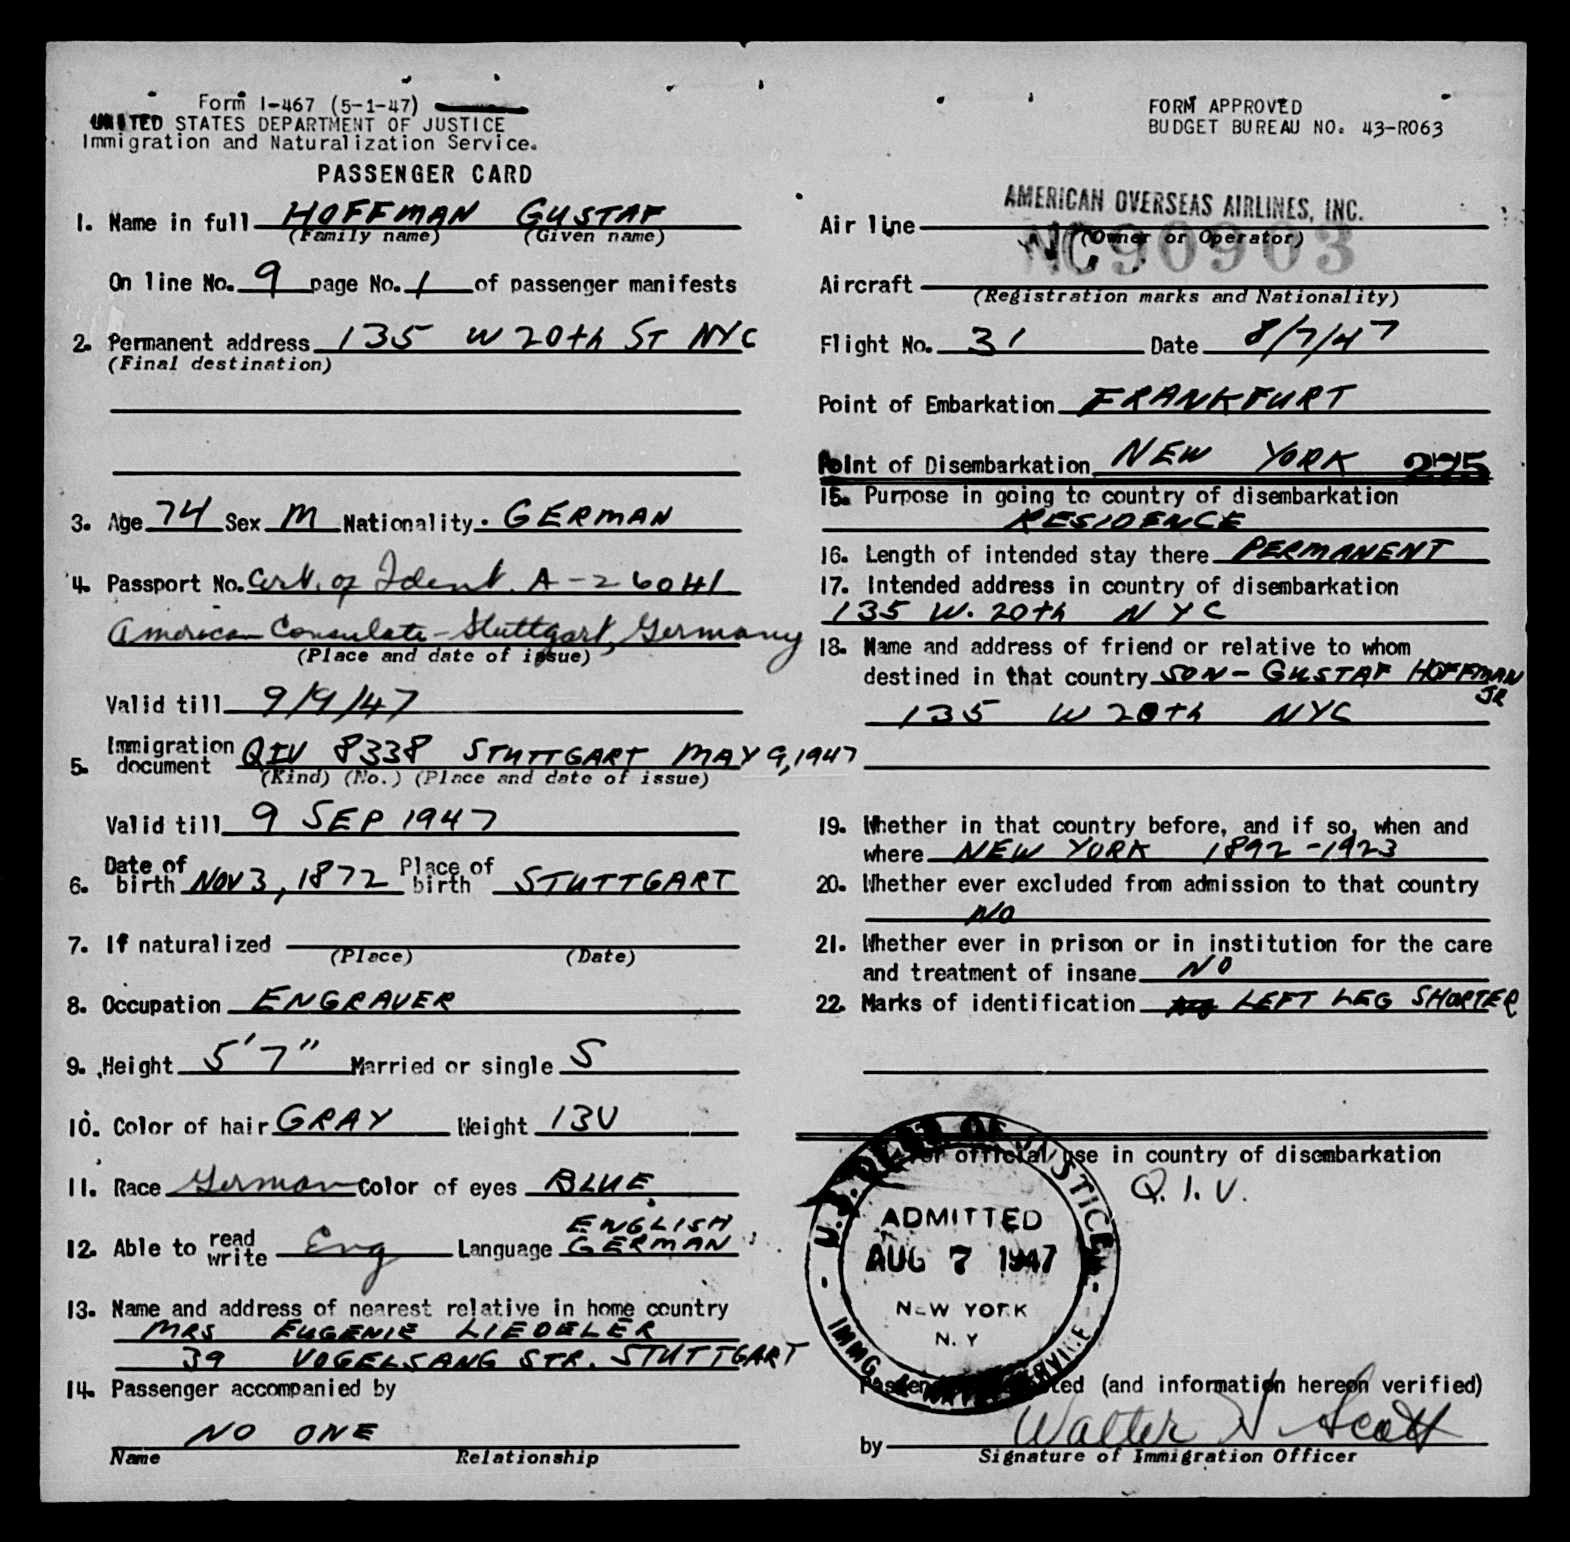 Form I-467 (5-1-47)
UNITED STATES DEPARTMENT OF JUSTICE
Immigration and Naturalization Service.
PASSENGER CARD
1. Name in full HOFFMAN GUSTAF
(Family name) (Given name)
On line No. 9 page No. 1 of passenger manifests
2. Permanent address 135 W 20th ST NYC
(Final destination)
3. Age 74 Sex M Nationality. GERMAN
4. Passport No. Cert. of Ident. A-26041
American Consulate - Stuttgart, Germany
(Place and date of issue)
Valid till 9/9/47
5. Immigration document QIV 8338 STUTTGART MAY 9, 1947
(Kind) (No.) (Place and date of issue)
Valid till 9 SEP 1947
6. Date of birth NOV 3, 1872 Place of birth STUTTGART
7. If naturalized
(Place) (Date)
8. Occupation ENGRAVER
9. Height 5'7" Married or single S
10. Color of hair GRAY Weight 130
11. Race German Color of eyes BLUE
12. Able to read write Eng Language ENGLISH GERMAN
13. Name and address of nearest relative in home country
MRS EUGENIE LIEDELER
39 VOGELSANG STR. STUTTGART
14. Passenger accompanied by
NO ONE
Name Relationship
FORM APPROVED
BUDGET BUREAU NO. 43-R063
AMERICAN OVERSEAS AIRLINES, INC.
Air line
(Owner or Operator)
NC90903
Aircraft
(Registration marks and Nationality)
Flight No. 31 Date 8/7/47
Point of Embarkation FRANKFURT
Point of Disembarkation NEW YORK 275
15. Purpose in going to country of disembarkation
RESIDENCE
16. Length of intended stay there PERMANENT
17. Intended address in country of disembarkation
135 W. 20th NYC
18. Name and address of friend or relative to whom
destined in that country SON - GUSTAF HOFFMAN JR
135 W 20th NYC
19. Whether in that country before, and if so, when and
where NEW YORK 1892-1923
20. Whether ever excluded from admission to that country
NO
21. Whether ever in prison or in institution for the care
and treatment of insane NO
22. Marks of identification LEFT LEG SHORTER
For official use in country of disembarkation
Q.I.V.
U.S. DEPT OF JUSTICE
ADMITTED
AUG 7 1947
NEW YORK
N.Y
IMMG.
(and information hereon verified)
by Walter H Scott
Signature of Immigration Officer